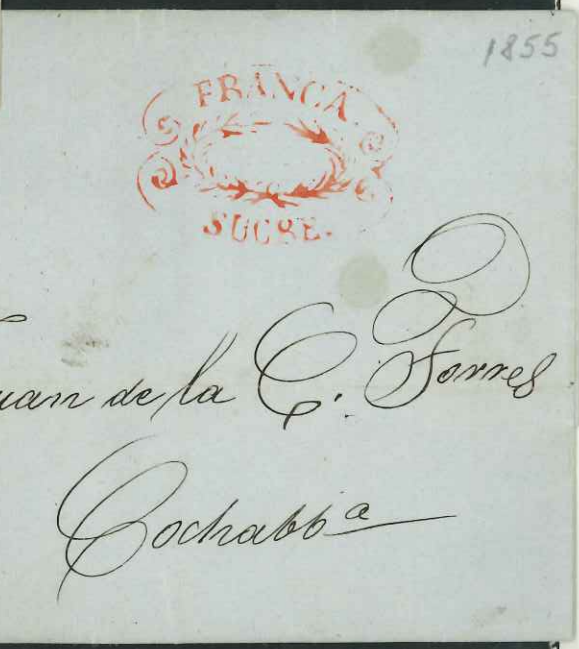 1855
FRANCA
SUCRE.
uan de la C. Torres
Cochabba